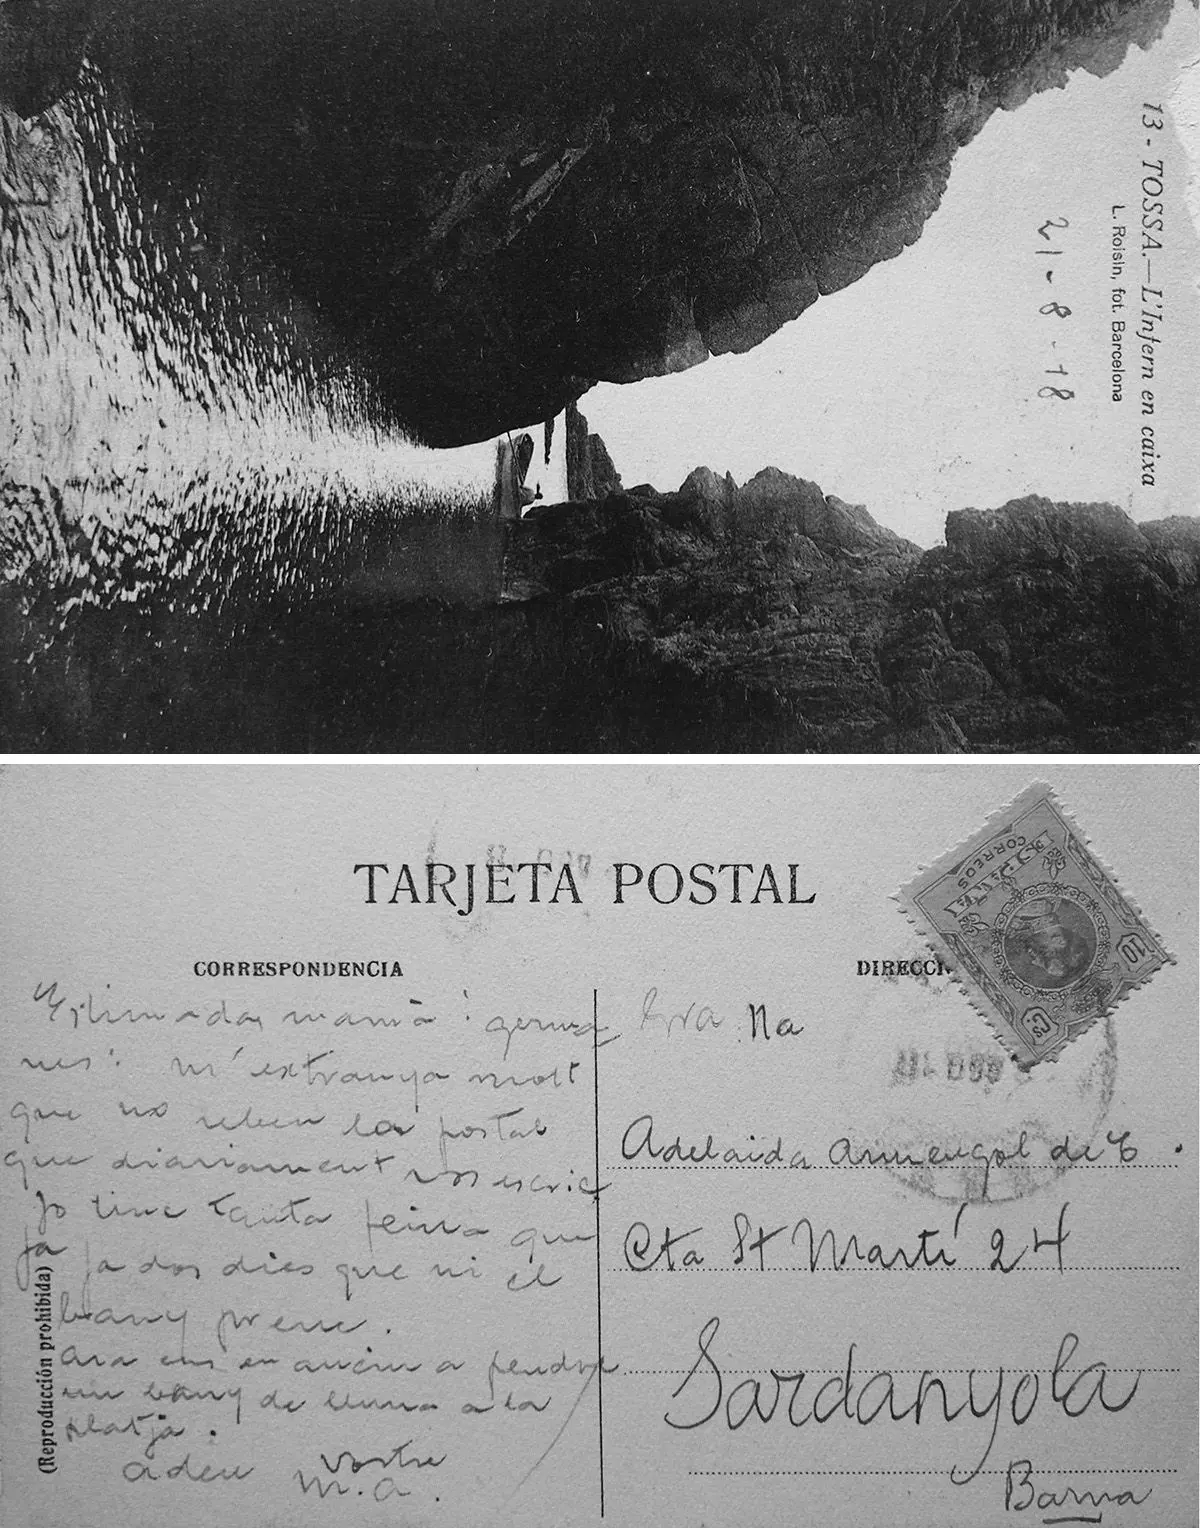 13 - TOSSA.—L'Infern en caixa
L. Roisin, fot. Barcelona
21-8-18
TARJETA POSTAL
CORRESPONDENCIA
Estimadas mamà i germa
nes: m'extranya molt
que no reben la postal
que diariament vos escric
Jo tinc tanta feina que
ja ja dos dies que ni el
bany prenc.
Ara ens en anem a pendre
un bany de lluna a la
platja.
adeu vostre
M.A.
(Reproducción prohibida)
DIRECCI
ESPAÑA
CORREOS
10
Cs
Sra Na
Adelaida Armengol de C.
Cta St Martí 24
Sardanyola
Barna